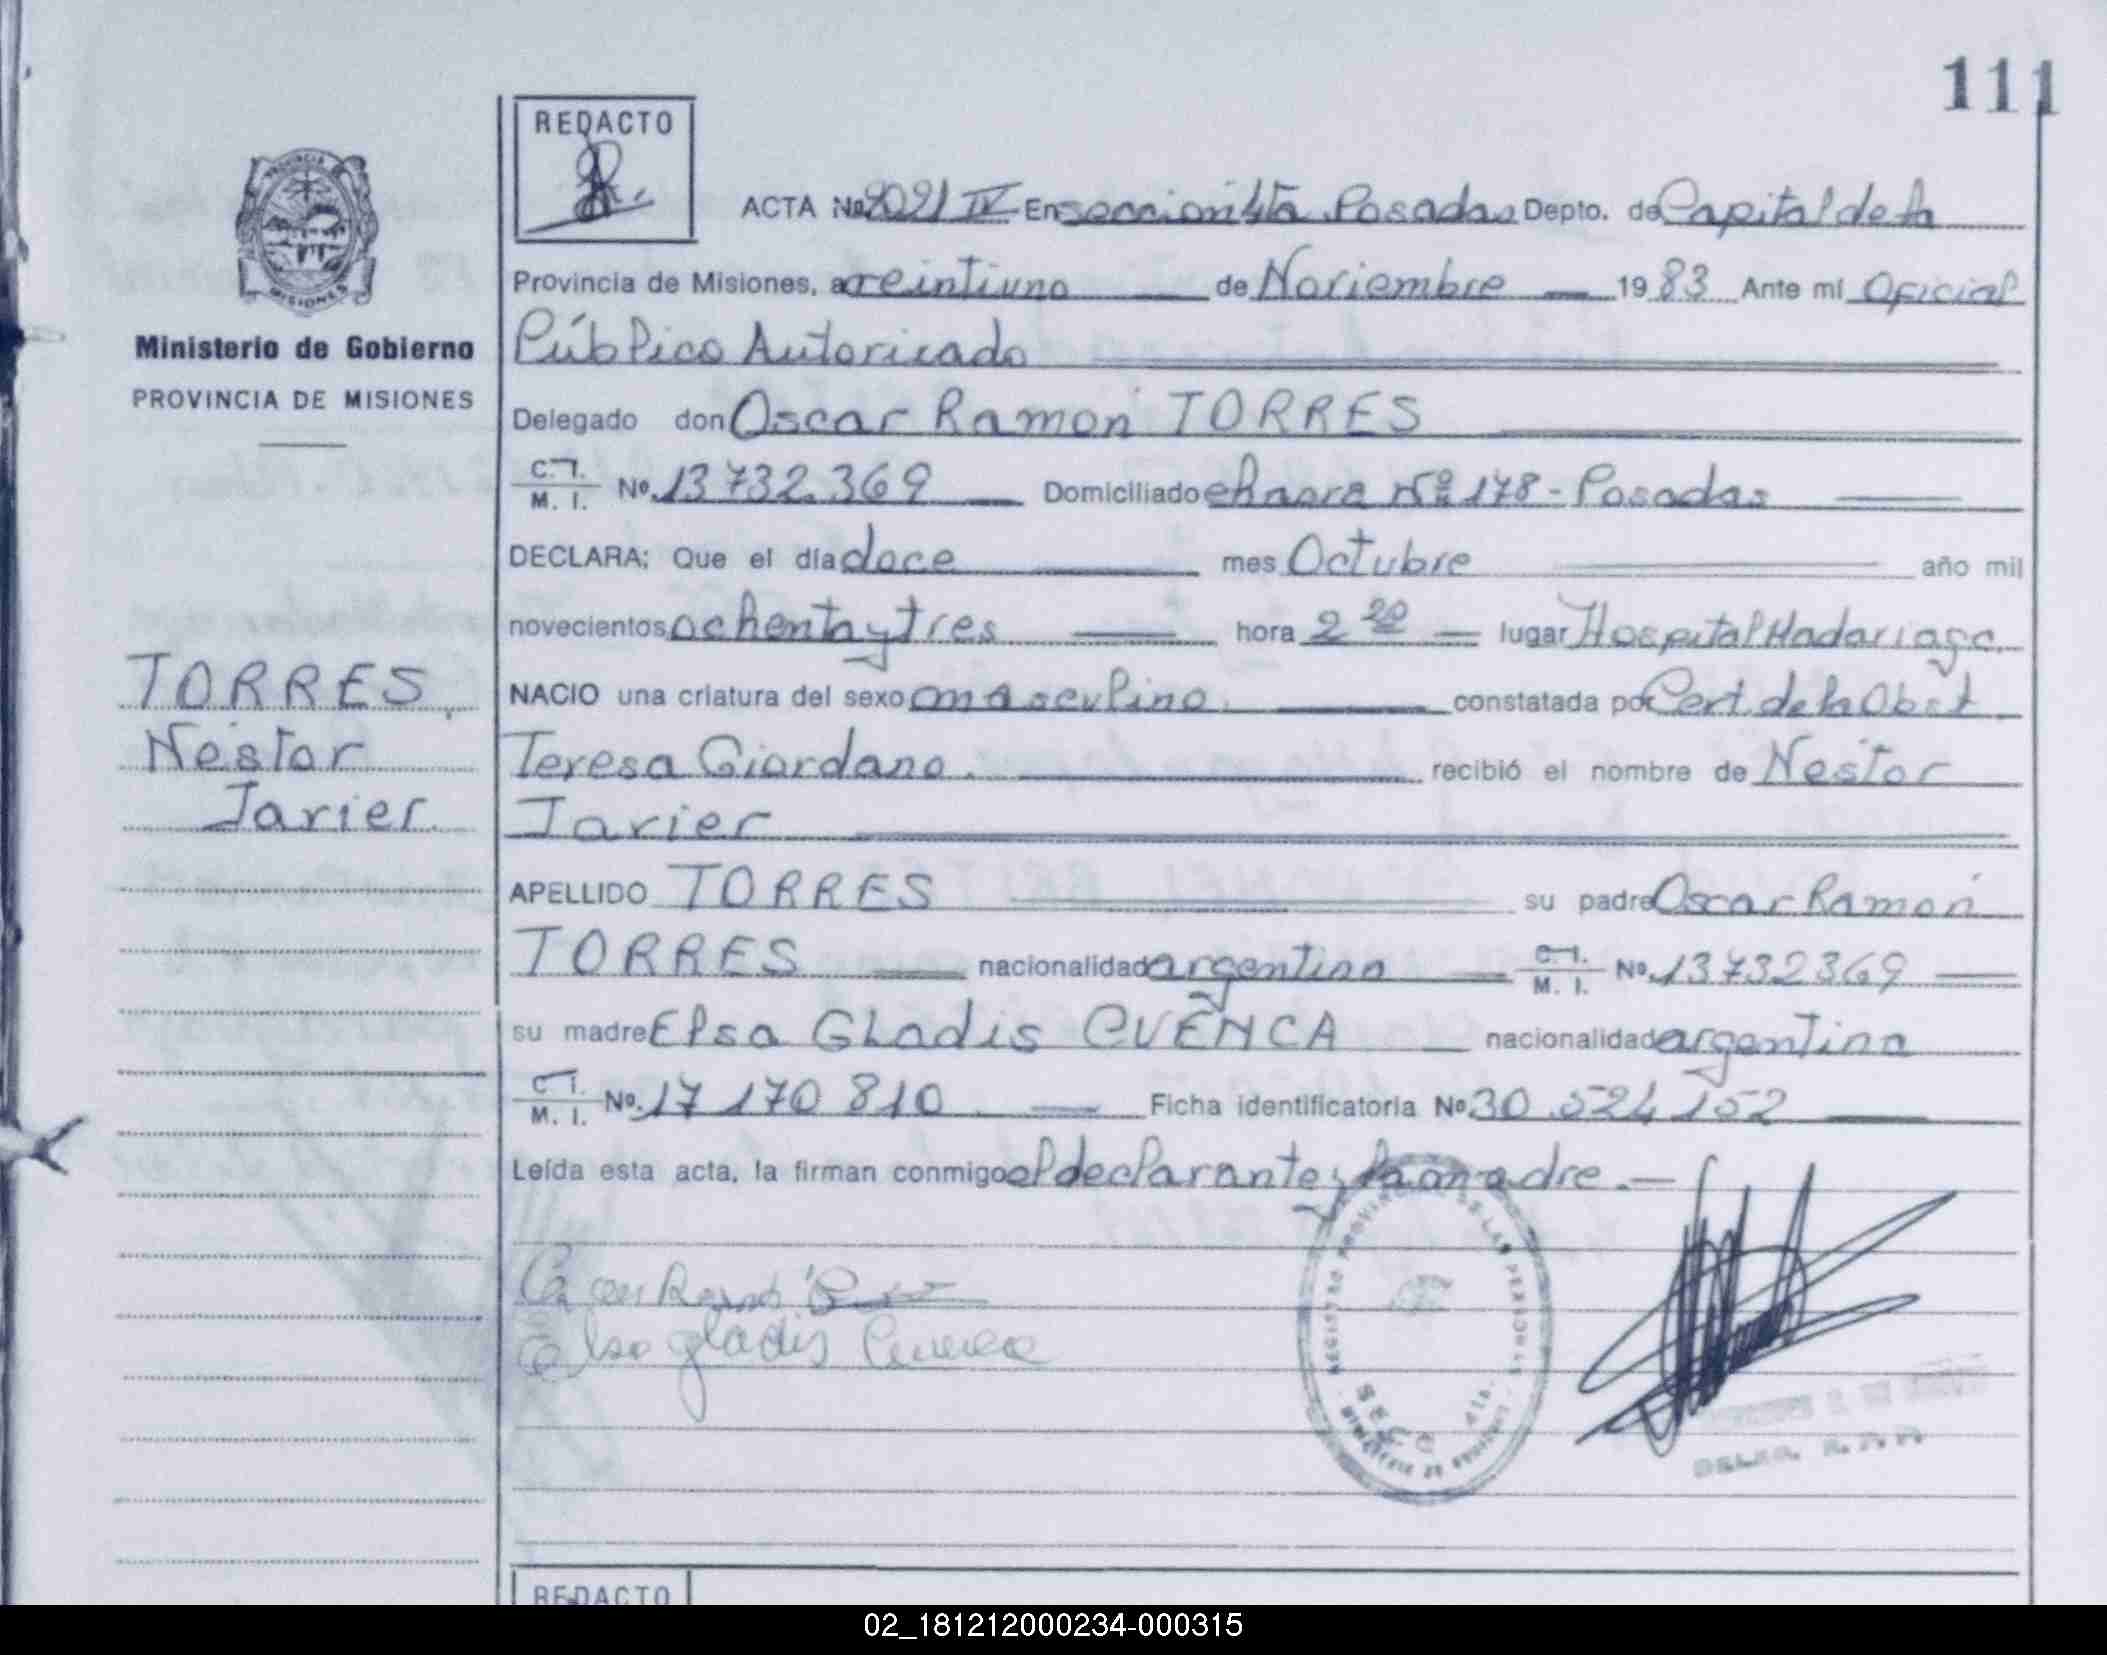 111
REDACTO
ACTA No. 2021 IV En sección 4ta Posadas Depto. de Capital de la
Provincia de Misiones, a veintiuno de Noviembre 1983 Ante mí Oficial
Público Autorizado
Delegado don Oscar Ramón TORRES
C. I.
M. I. No. 13732.369 Domiciliado chacra Nº 178 - Posadas
DECLARA: Que el día doce mes Octubre año mil
novecientos ochenta y tres hora 2 20 lugar Hospital Madariaga.
NACIO una criatura del sexo masculino. constatada por Cert. de la Obst
Teresa Giordano. recibió el nombre de Nestor
Javier
APELLIDO TORRES su padre Oscar Ramón
TORRES nacionalidad argentina C. I.
M. I. No. 13732369
su madre Elsa Gladis CUENCA nacionalidad argentina
C. I.
M. I. No. 17 170 810 Ficha identificatoria No 30.524152
Leída esta acta, la firman conmigo el declarante y la madre.—
Elsa gladis Cuenca
REGISTRO PROVINCIAL DE LAS PERSONAS
SECC 4ta.
PROVINCIA
MISIONES
Ministerio de Gobierno
PROVINCIA DE MISIONES
TORRES,
Nestor
Javier.
REDACTO
02_181212000234-000315